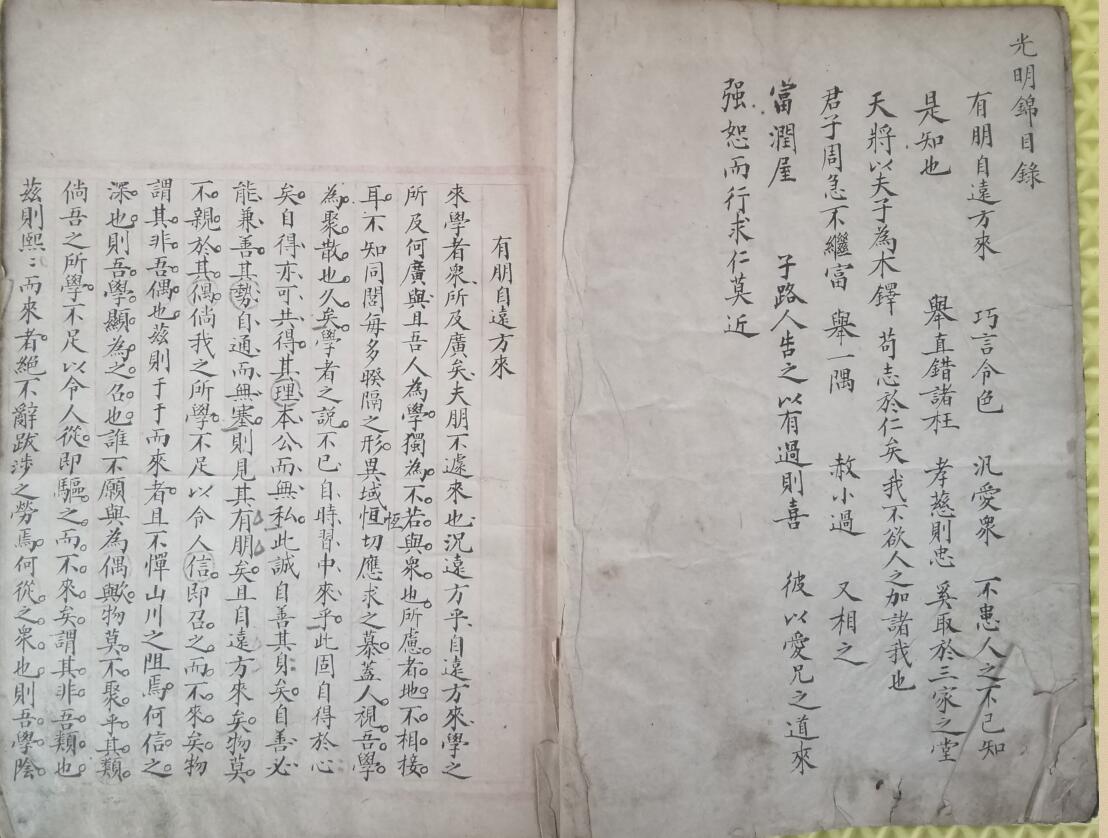 光明錦目錄
有朋自遠方來 巧言令色 汎愛衆 不患人之不己知
是知也 舉直錯諸枉 孝慈則忠 奚取於三家之堂
天將以夫子為木鐸 苟志於仁矣 我不欲人之加諸我也
君子周急不繼富 舉一隅 赦小過 又相之
富潤屋 子路人告之以有過則喜 彼以愛兄之道來
强恕而行求仁莫近
有朋自遠方來
來學者衆所及廣矣夫朋不遽來也況遠方乎自遠方來學之
所及何廣與且吾人為學獨為不若與衆也所慮者地不相接
耳不知同閭每多睽隔之形異域恒切應求之慕蓋人視吾學
恆
為聚散也久矣學者之説不已自時習中來乎此固自得於心
矣自得亦可共得其理本公而無私此誠自善其身矣自善必
能兼善其勢自通而無塞則見其有朋矣且自遠方來矣物莫
不親於其偶倘我之所學不足以令人信即召之而不來矣物
謂其非吾偶也茲則于于而來者且不憚山川之阻焉何信之
深也則吾學顯為之召也誰不願與為偶歟物莫不聚乎其類
倘吾之所學不足以令人從即驅之而不來矣謂其非吾類也
茲則熙:而來者絕不辭跋涉之勞焉何從之衆也則吾學陰